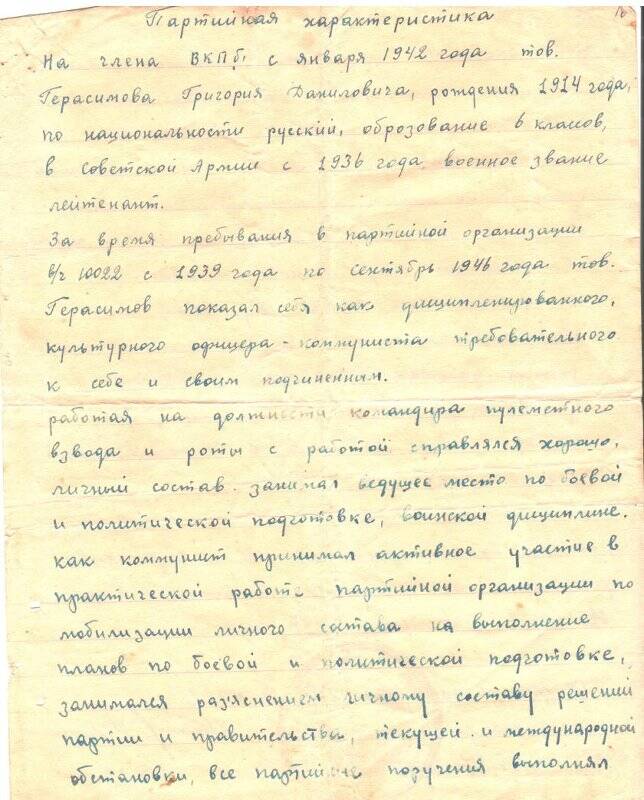 Партийная характеристика
На члена ВКПб, с января 1942 года тов.
Герасимова Григория Даниловича, рождения 1914 года,
по национальности русский, оброзование 6 классов,
в Советской Армии с 1936 года, военное звание
лейтенант.
За время пребывания в партийной организации
в/ч 10022 с 1939 года по сентябрь 1946 года тов.
Герасимов показал себя как дисциплинированного,
культурного офицера - коммуниста требовательного
к себе и своим подчиненным.
работая на должности командира пулеметного
взвода и роты с работой справлялся хорошо,
личный состав занимал ведущее место по боевой
и политической подготовке, воинской дисциплине.
как коммунист принимал активное участие в
практической работе партийной организации по
мобилизации личного состава на выполнение
планов по боевой и политической подготовке,
занимался раз'яснением личному составу решений
партии и правительства, текущей и международной
обстановки, все партийные поручения выполнял